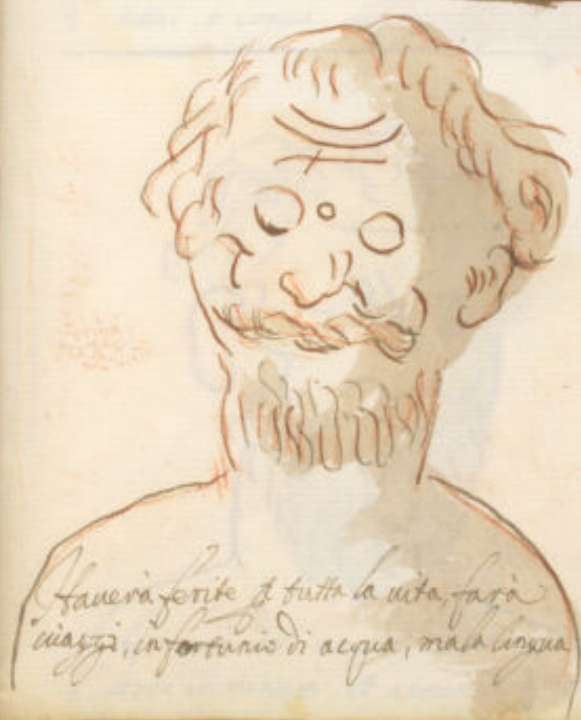 Haverà ferite p tutta la vita, farà
viaggi, infortunio di acqua, mala lingua